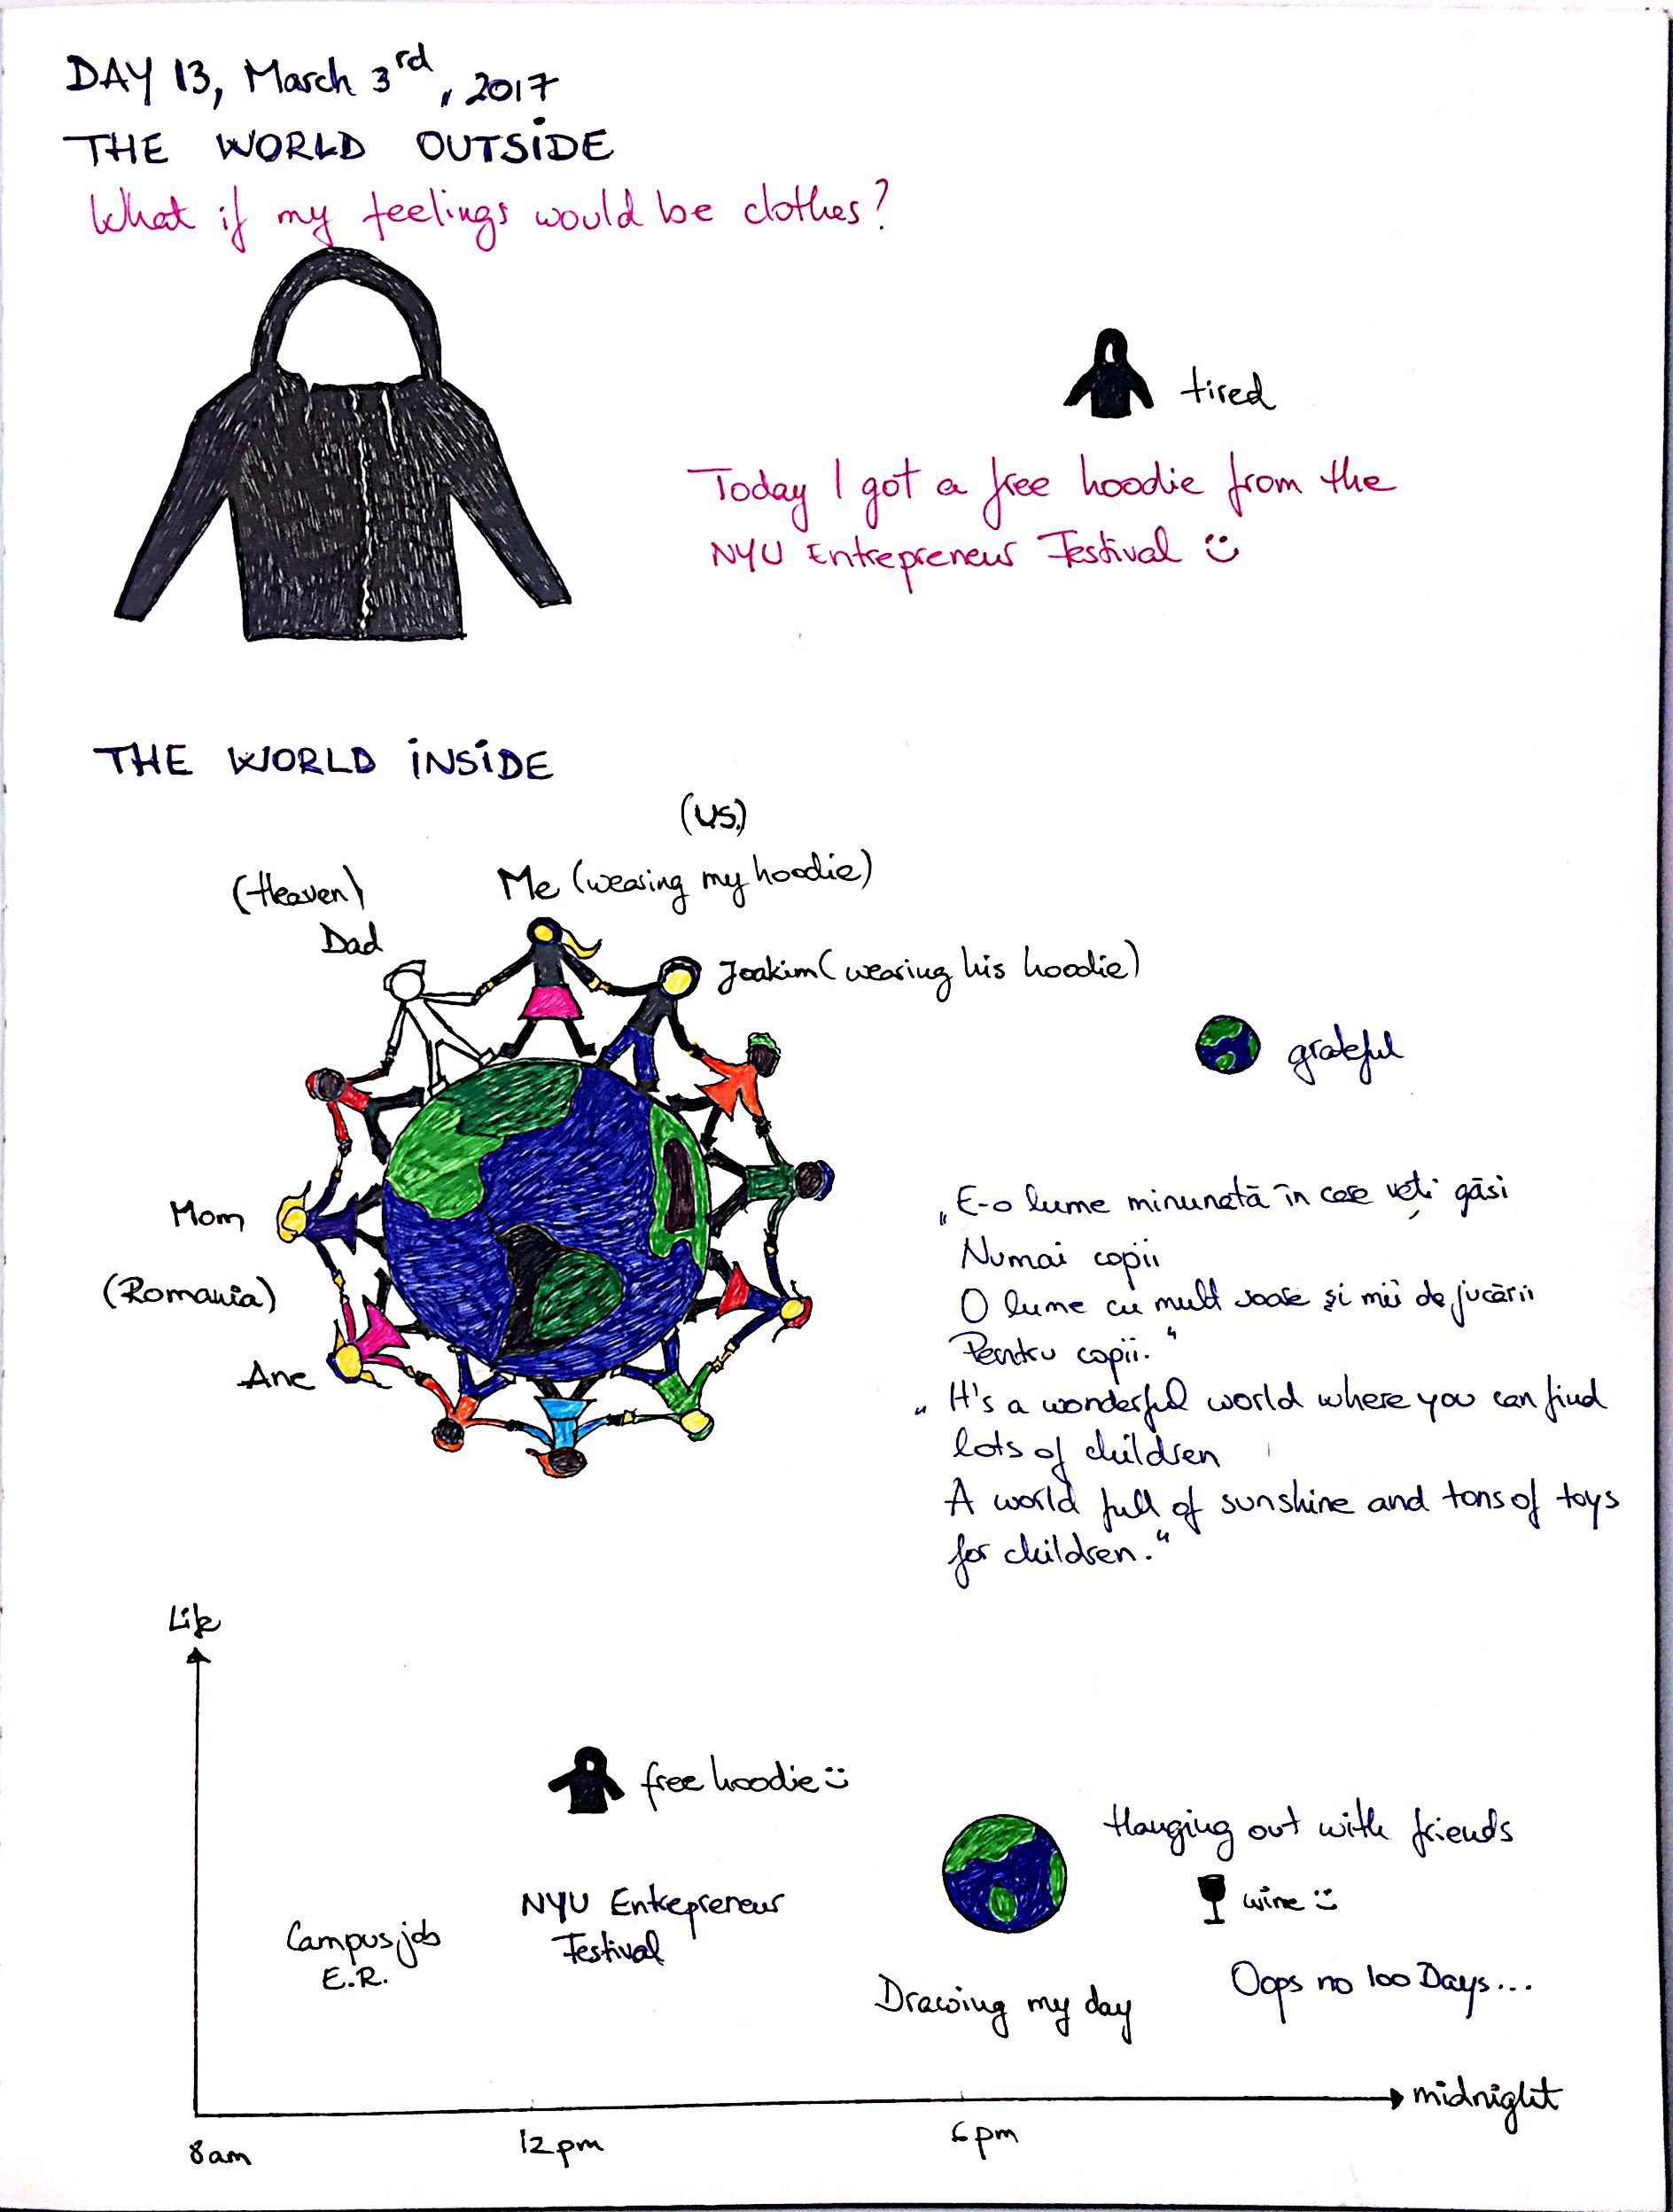 DAY 13, March 3rd, 2017
THE WORLD OUTSIDE
What if my feelings would be clothes?
tired
Today I got a free hoodie from the
NYU Entrepreneur Festival :)
THE WORLD INSIDE
(U.S.)
(Heaven)
Me (wearing my hoodie)
Dad
Joakim (wearing his hoodie)
grateful
Mom
(Romania)
Ane
„E-o lume minunată în care veți găsi
Numai copii
O lume cu mult soare și mii de jucării
Pentru copii."
„It's a wonderful world where you can find
lots of children
A world full of sunshine and tons of toys
for children."
Life
free hoodie :)
Hanging out with friends
wine :)
NYU Entrepreneur
Festival
Campus job
E.R.
Drawing my day
Oops no 100 Days...
midnight
8am
12pm
6pm